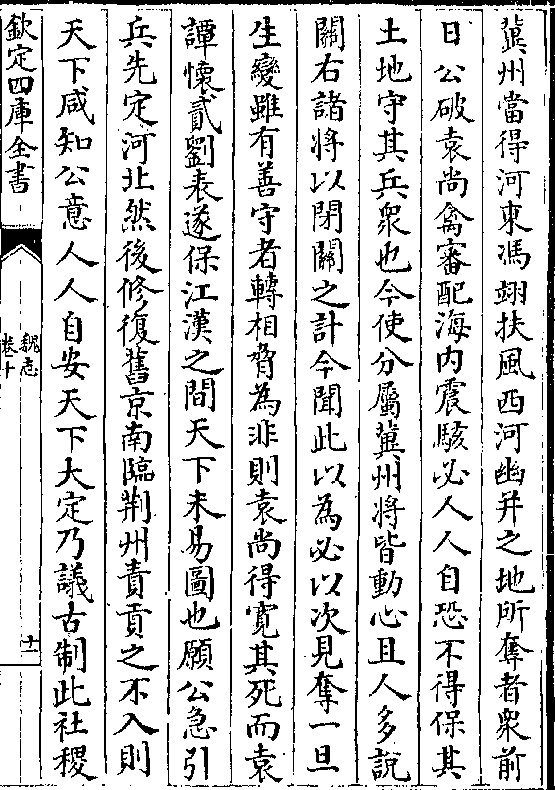 冀州當得河東馮翊扶風西河幽并之地所奪者衆前
日公破袁尚禽審配海内震駭必人人自恐不得保其
土地守其兵衆也今使分屬冀州將皆動心且人多説
關右諸將以閉關之計今聞此以為必以次見奪一旦
生變雖有善守者轉相脅為非則袁尚得寛其死而袁
譚懷貳劉表遂保江漢之間天下未易圖也願公急引
兵先定河北然後修復舊京南臨荆州責貢之不入則
天下咸知公意人人自安天下大定乃議古制此社稷
欽定四庫全書
魏志
卷十
十一